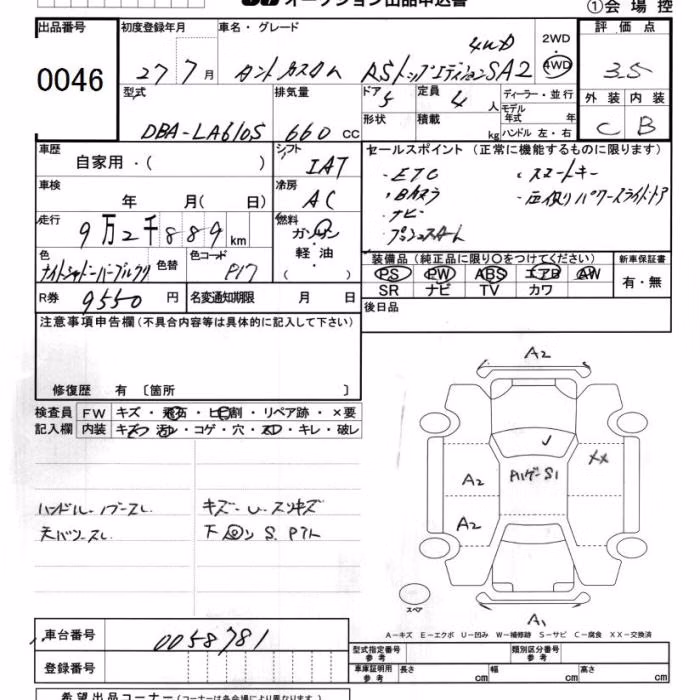 オークション出品申込書
①会場控
出品番号 初度登録年月 車名・グレード 評価点
0046 27 7 月 タントカスタム RSトップエディションSA2 4WD 2WD 4WD 3.5
型式 排気量 ドア 定員 ディーラー・並行 外装 内装
DBA-LA610S 660 cc 5 4 人 モデル年式 年 C B
形状 積載 kg ハンドル 左・右
車歴 シフト セールスポイント(正常に機能するものに限ります)
自家用・( ) IAT ・ETC ・スマートキー
車検 冷房 ・Bカメラ
年 月( 日) AC ・ナビ
走行 燃料 プッシュスタート
9万2千889 km ガソリン
軽油
・( )
色 色替 色コード 装備品(純正品に限り○をつけてください) 新車保証書
P17 PS PW ABS エアB AW 有・無
SR ナビ TV カワ
R券 9550 円 名変通知期限 月 日 後日品
注意事項申告欄(不具合内容等は具体的に記入して下さい)
修復歴 有 〔箇所 〕
検査員 FW キズ・飛石・ヒビ割・リペア跡・×要
記入欄 内装 キズ・汚れ・コゲ・穴・キレ・破レ
A2
XX
A2
A2
ハンドル キズ・U・スリキズ
天バリスレ
スペア
A1
A-キズ E-エクボ U-凹み W-補修跡 S-サビ C-腐食 XX-交換済
車台番号 0058781
型式指定番号 参考 類別区分番号 参考
登録番号 車庫証明用 参考 長さ cm 幅 cm 高さ cm
希望出品コーナー(コーナーは各会場により異なります。)